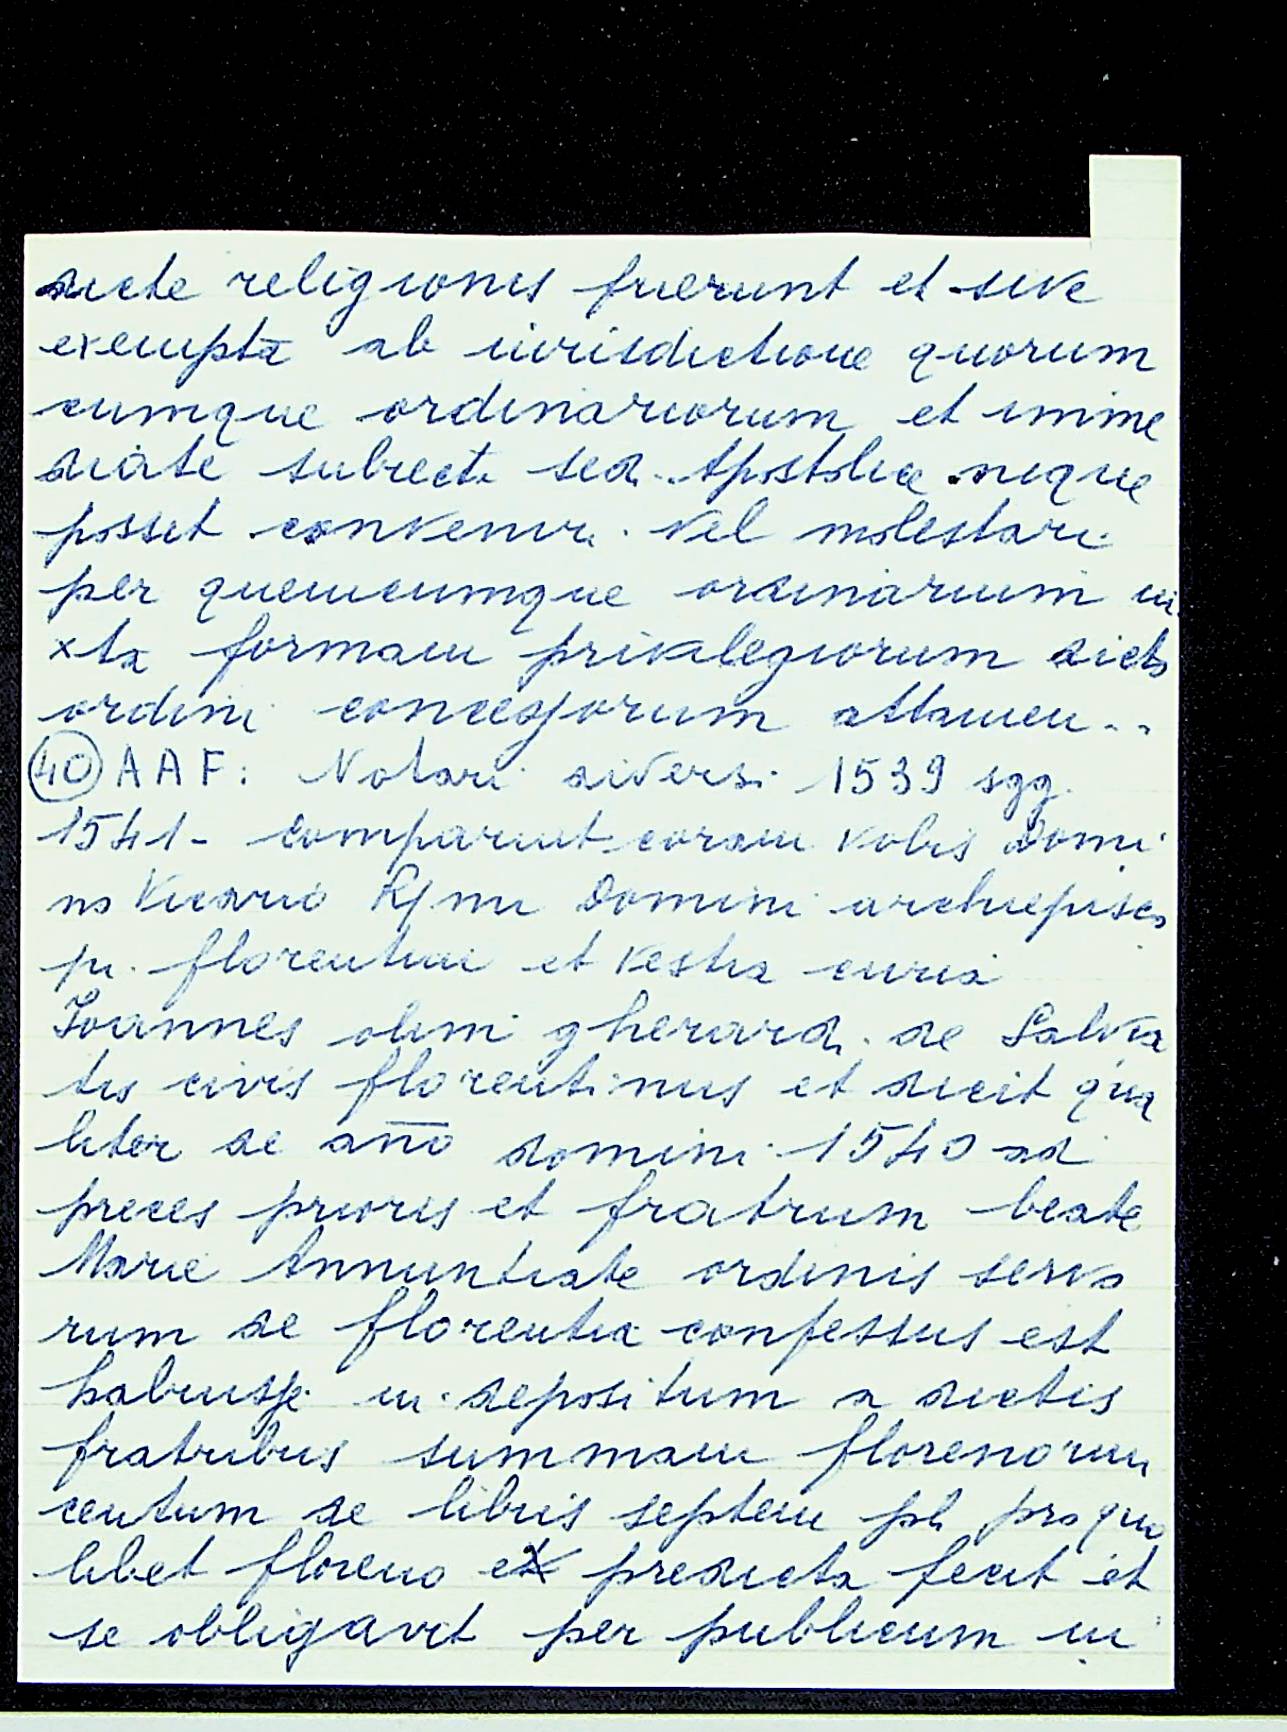 dicte religionis fuerunt et sive
exempta ab iurisdictione quorum
cumque ordinariorum et imme
diate subiecti sed. Apostolice neque
posset conveniri. vel molestari
per quemcumque ordinarium iu
xta formam privilegiorum dicto
ordini concessorum attamen..
40 AAF: Notari diversi 1539 sgg.
1541 - Comparuit coram vobis Domi
no Vicario Rssmi Domini archiepisco
pi florentini et vestra curia
Ioannes olim gherardi de Salvia
tis civis florentinus et dicit qua
liter de año domini 1540 ad
preces prioris et fratrum beate
Marie Annuntiate ordinis servo
rum de florentia confessus est
habuisse in depositum a dictis
fratribus summam florenorum
centum de libris septem pli pro quo
libet floreno et predicta fecit et
se obligavit per publicum in